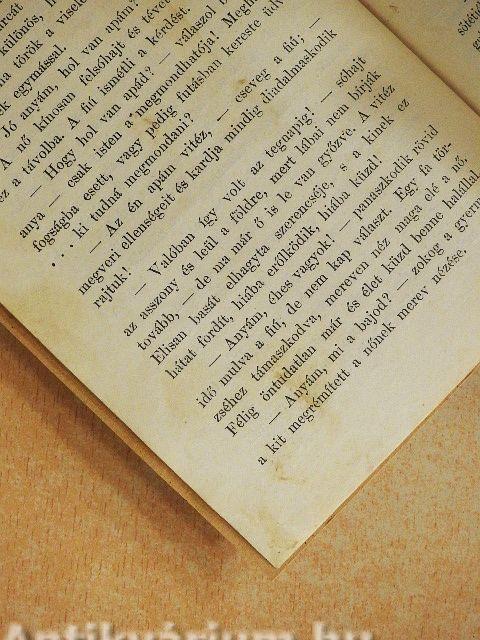 különös, h
na török a viselt
ek egymással.
Jó anyám, hol van apám?
A nő kínosan felsóhajt és téve
ez a távolba. A fiú ismétli a kérdést.
— Hogy hol van apád? — válaszol
anya — csak isten a megmondhatója! Megh
fogságba esett, vagy pedig futásban kereste üdv
. . . ki tudná megmondani?
— Az én apám vitéz, — cseveg a fiú; —
megveri ellenségeit és kardja mindig diadalmaskodik
rajtuk!
— Valóban így volt az tegnapig! — sóhajt
az asszony és leül a földre, mert lábai nem bírják
tovább, — de ma már ő is le van győzve. A vitéz
Elisan basát elhagyta szerencséje, s a kinek ez
hátat fordít, hiába erőlködik, hiába küzd!
— Anyám, éhes vagyok! — panaszkodik rövid
idő mulva a fiú, de nem kap választ. Egy fa tör-
zséhez támaszkodva, mereven néz maga elé a nő.
Félig öntudatlan már és élet küzd benne halállal
— Anyám, mi a bajod? — zokog a gyerm
a kit megrémített a nőnek merev nézése
Antikvárium.hu